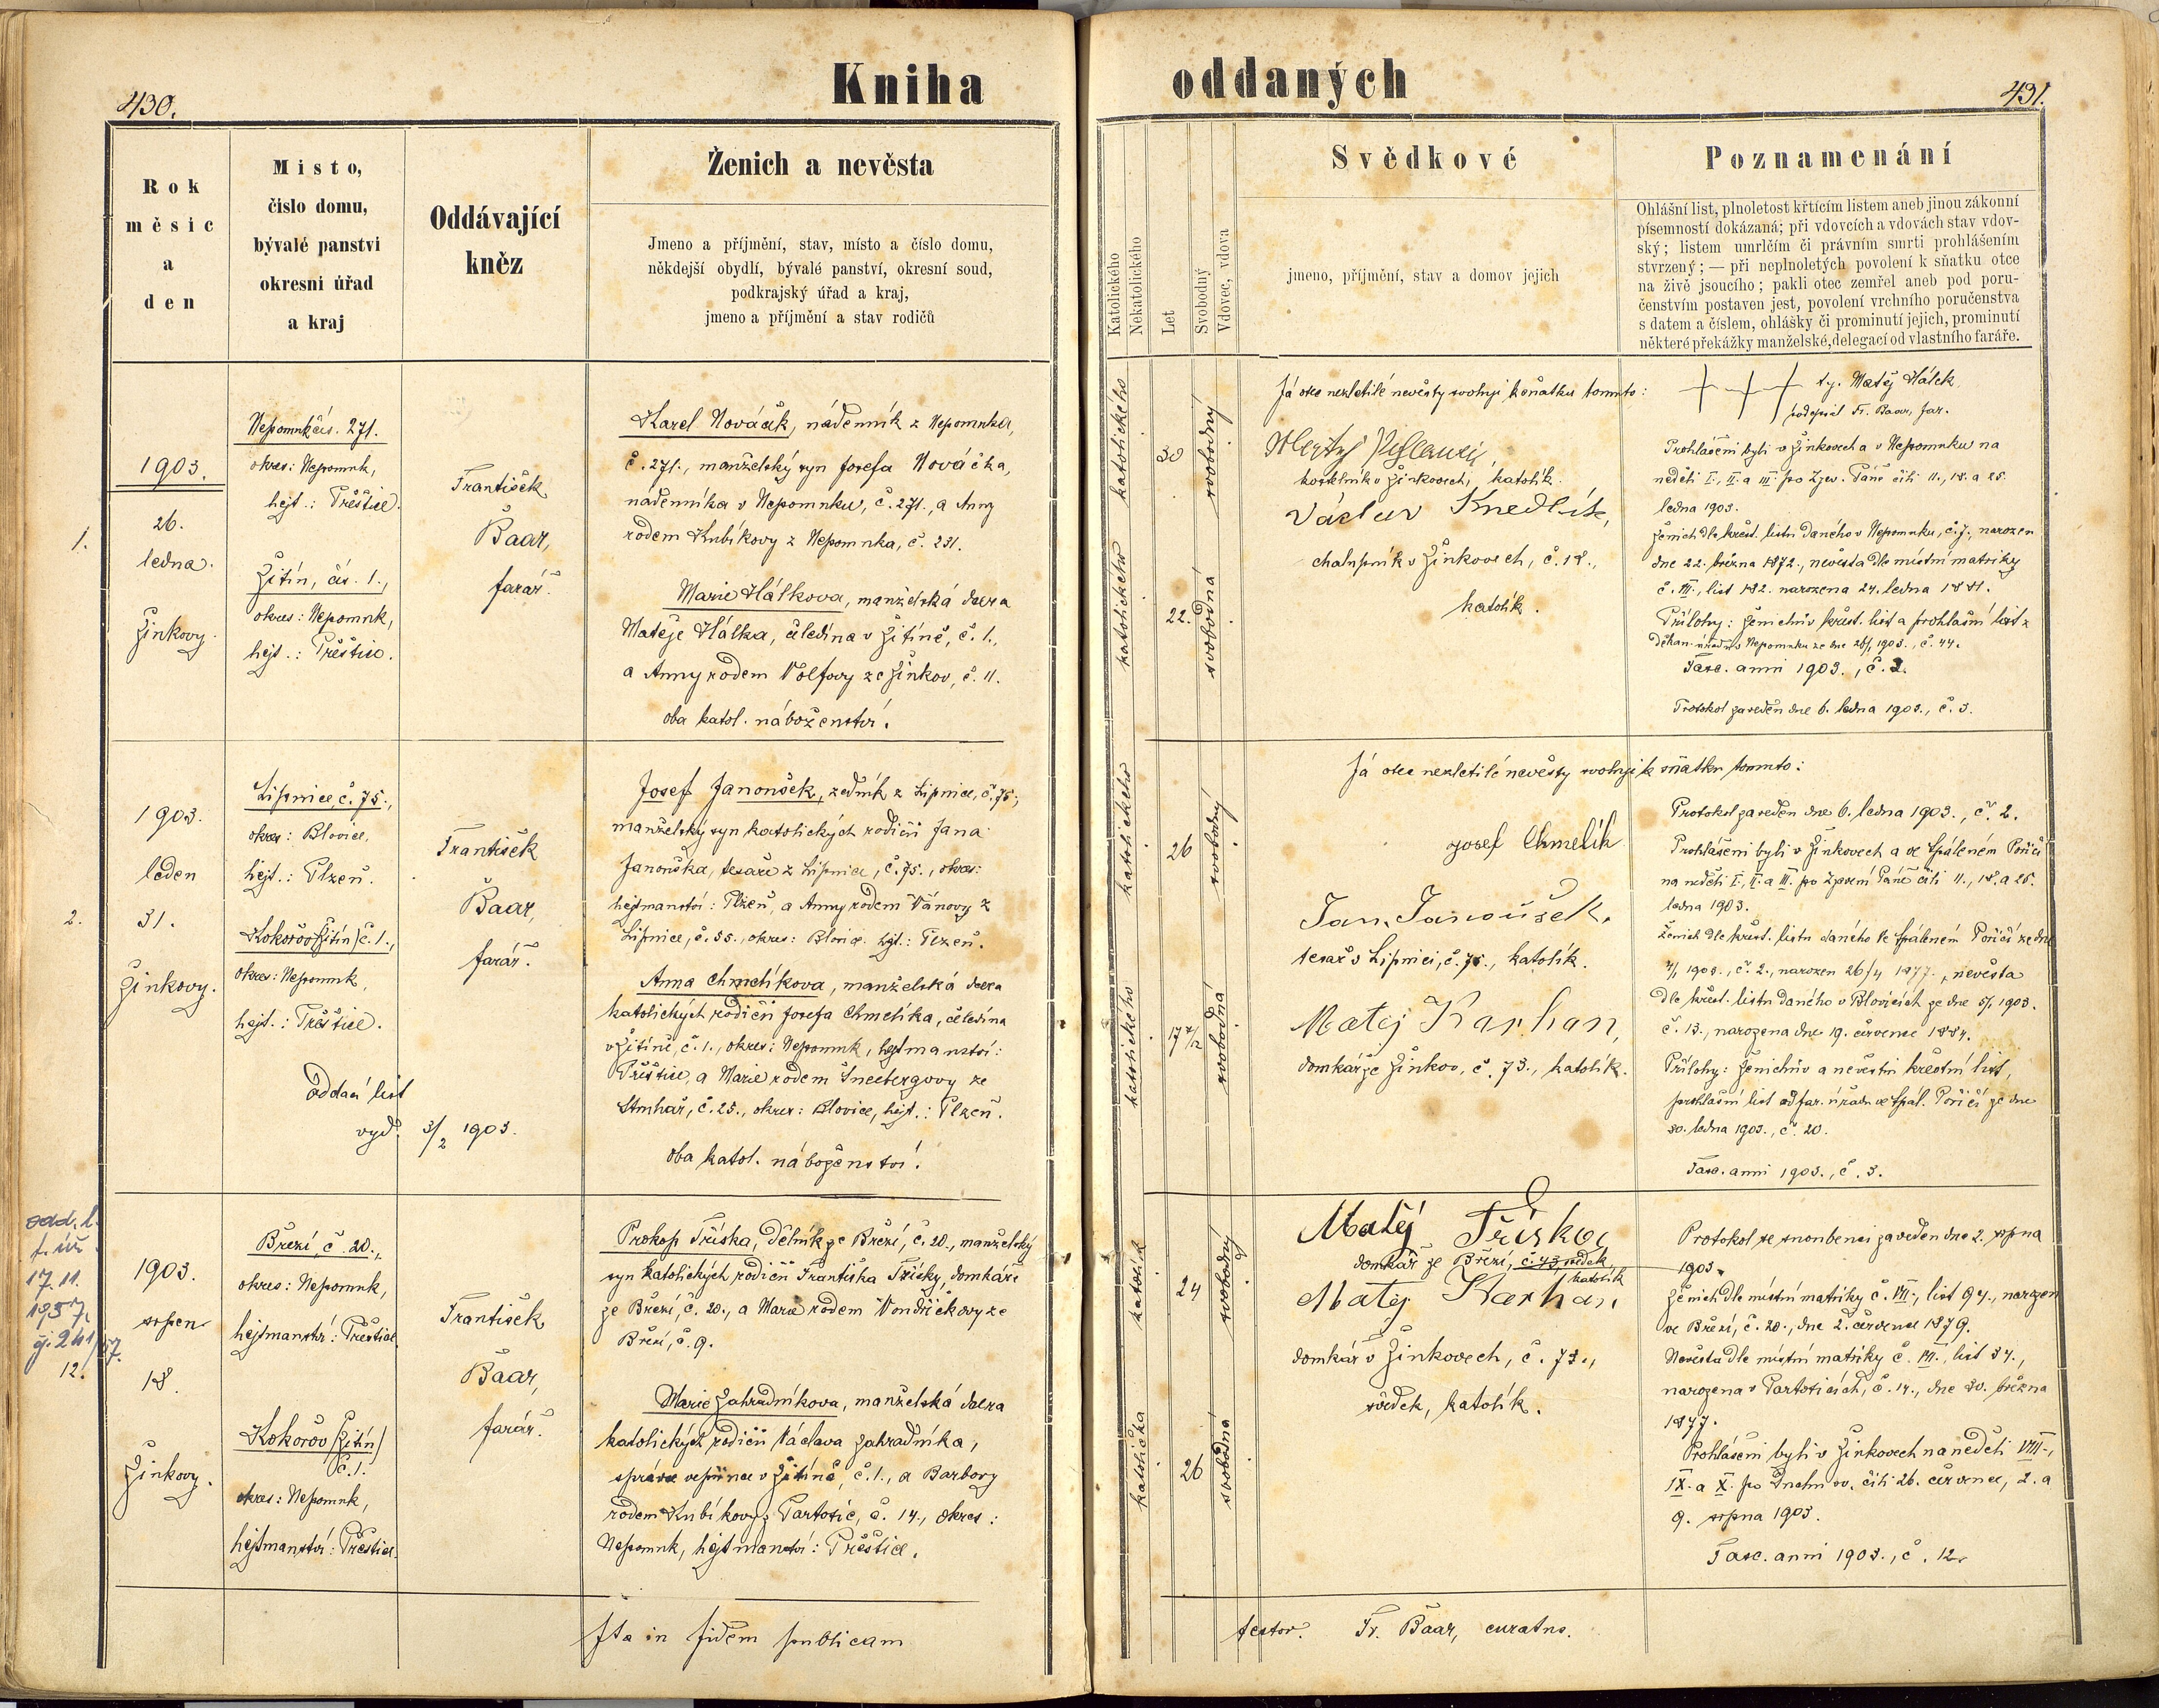 430.
Kniha
Rok
měsic
a
den
Misto,
čislo domu,
bývalé panstvi
okresni úřad
a kraj
Oddávající
kněz
Ženich a nevěsta
Jmeno a příjmění, stav, místo a číslo domu,
někdejší obydlí, bývalé panství, okresní soud,
podkrajský úřad a kraj,
jmeno a příjmění a stav rodičů
1.
1903.
26.
ledna.
Žinkovy.
Nepomuk čís. 271.
okres: Nepomuk,
hejt.: Přeštice.
Žitín, čís. 1.,
okres: Nepomuk,
hejt.: Přeštice.
František
Baar,
farář.
Karel Nováček, nádenník z Nepomuka,
č. 271., manželský syn Josefa Nováčka,
nádenníka v Nepomuku, č. 271., a Anny
rodem Kubíkovy z Nepomuka, č. 231.
Marie Hálkova, manželská dcera
Matěje Hálka, čeledína v Žitíně, č. 1.,
a Anny rodem Volfovy ze Žinkov, č. 11.
oba katol. náboženství.
2.
1903.
leden
31.
Žinkovy.
Lipnice, č. 75.,
okres: Blovice,
hejt.: Plzeň.
Kokořov (Žitín) č. 1.,
okres: Nepomuk,
hejt.: Přeštice.
oddací list
vyd. 3/2 1903.
František
Baar,
farář.
Josef Janoušek, zedník z Lipnice, č. 75.,
manželský syn katolických rodičů Jana
Janouška, tesaře z Lipnice, č. 75., okres:
hejtmanství: Plzeň, a Anny rodem Vánovy z
Lipnice, č. 55., okres: Blovice. hejt.: Plzeň.
Anna Chmelíkova, manželská dcera
katolických rodičů Josefa Chmelíka, čeledína
v Žitíně, č. 1., okres: Nepomuk, hejtmanství:
Přeštice, a Marie rodem Šnebergovy ze
Struhař, č. 25., okres: Blovice, hejt.: Plzeň.
oba katol. náboženství.
odd. l.
f. úř.
17.11.
1957,
čj. 241/57.
12.
1903.
srpen
18.
Žinkovy.
Březí, č. 20.,
okres: Nepomuk,
hejtmanství: Přeštice.
Kokořov (Žitín)
č. 1.
okres: Nepomuk,
hejtmanství: Přeštice.
František
Baar,
farář.
Prokop Tříska, dělník ze Březí, č. 20., manželský
syn katolických rodičů Františka Třísky, domkáře
ze Březí, č. 20., a Marie rodem Vondřičkovy ze
Březí, č. 9.
Marie Zahradníkova, manželská dcera
katolických rodičů Václava Zahradníka,
správce vepřince v Žitíně, č. 1., a Barbory
rodem Kubíkovy z Partotic, č. 14., okres:
Nepomuk, hejtmanství: Přeštice.
Ita in fidem publicam
oddaných
431.
Katolického
Nekatolického
Let
Svobodný
Vdovec, vdova
Svědkové
jmeno, příjmění, stav a domov jejich
Poznamenání
Ohlášní list, plnoletost křtícím listem aneb jinou zákonní
písemností dokázaná; při vdovcích a vdovách stav vdov-
ský; listem umrlčím či právním smrti prohlášením
stvrzený; — při neplnoletých povolení k sňatku otce
na živě jsoucího; pakli otec zemřel aneb pod poru-
čenstvím postaven jest, povolení vrchního poručenstva
s datem a číslem, ohlášky či prominutí jejich, prominutí
některé překážky manželské, delegací od vlastního faráře.
katolického
30
svobodný
katolického
22.
svobodná
Já otec nezletilé nevěsty svoluji k sňatku tomuto:
kostelník v Žinkovech, katolík.
Václav Knedlík,
chalupník v Žinkovech, č. 18.,
katolík.
+ + + ty. Matěj Hálek
podepsal Fr. Baar, far.
Prohlášeni byli v Žinkovech a v Nepomuku na
neděli I., II. a III. po Zjev. Páně čili 11., 18. a 25.
ledna 1903.
Ženich dle křest. listu daného v Nepomuku, č. j., narozen
dne 22. března 1872., nevěsta dle místní matriky
č. III., list 182. narozena 24. ledna 1881.
Přílohy: ženichův křest. list a prohlašní list z
děkan. úřadu v Nepomuku ze dne 26/1 1903., č. 44.
Fasc. anni 1903., č. 2.
Protokol zaveden dne 6. ledna 1903., č. 3.
katolického
26
svobodný
katolického
17 7/12
svobodná
Já otec nezletilé nevěsty svoluji k sňatku tomuto:
Josef Chmelík
Jan Janoušek,
tesař v Lipnici, č. 75., katolík.
Matěj Karhan,
domkář ze Žinkov, č. 73., katolík.
Protokol zaveden dne 6. ledna 1903., č. 2.
Prohlášeni byli v Žinkovech a ve Spáleném Poříčí
na neděli I., II. a III. po Zjevení Páně čili 11., 18. a 25.
ledna 1903.
Ženich dle křest. listu daného ve Spáleném Poříčí ze dne
4/1 1903., č. 2., narozen 26/4 1877., nevěsta
dle křest. listu daného v Blovicích ze dne 5/1 1903.
č. 13., narozena dne 19. července 1884.
Přílohy: ženichův a nevěstin křestní list,
prohlašní list od far. úřadu ve Spál. Poříčí ze dne
30. ledna 1903., č. 20.
Fasc. anni 1903., č. 3.
katolík
24
svobodný
katolička
26
svobodná
Matěj Tříska,
domkář ze Březí, č. 43, svědek
katolík
Matěj Karhan,
domkář v Žinkovech, č. 73.,
svědek, katolík.
Protokol se snoubenci zaveden dne 2. srpna
1903.
Ženich dle místní matriky č. VII., list 94., narozen
ve Březí, č. 20., dne 2. července 1879.
Nevěsta dle místní matriky č. VI., list 34.,
narozena v Partoticích, č. 14., dne 30. března
1877.
Prohlášeni byli v Žinkovech na neděli VIII.,
IX. a X. po Duchu sv. čili 26. července, 2. a
9. srpna 1903.
Fasc. anni 1903., č. 12.
testor. Fr. Baar, curatus.